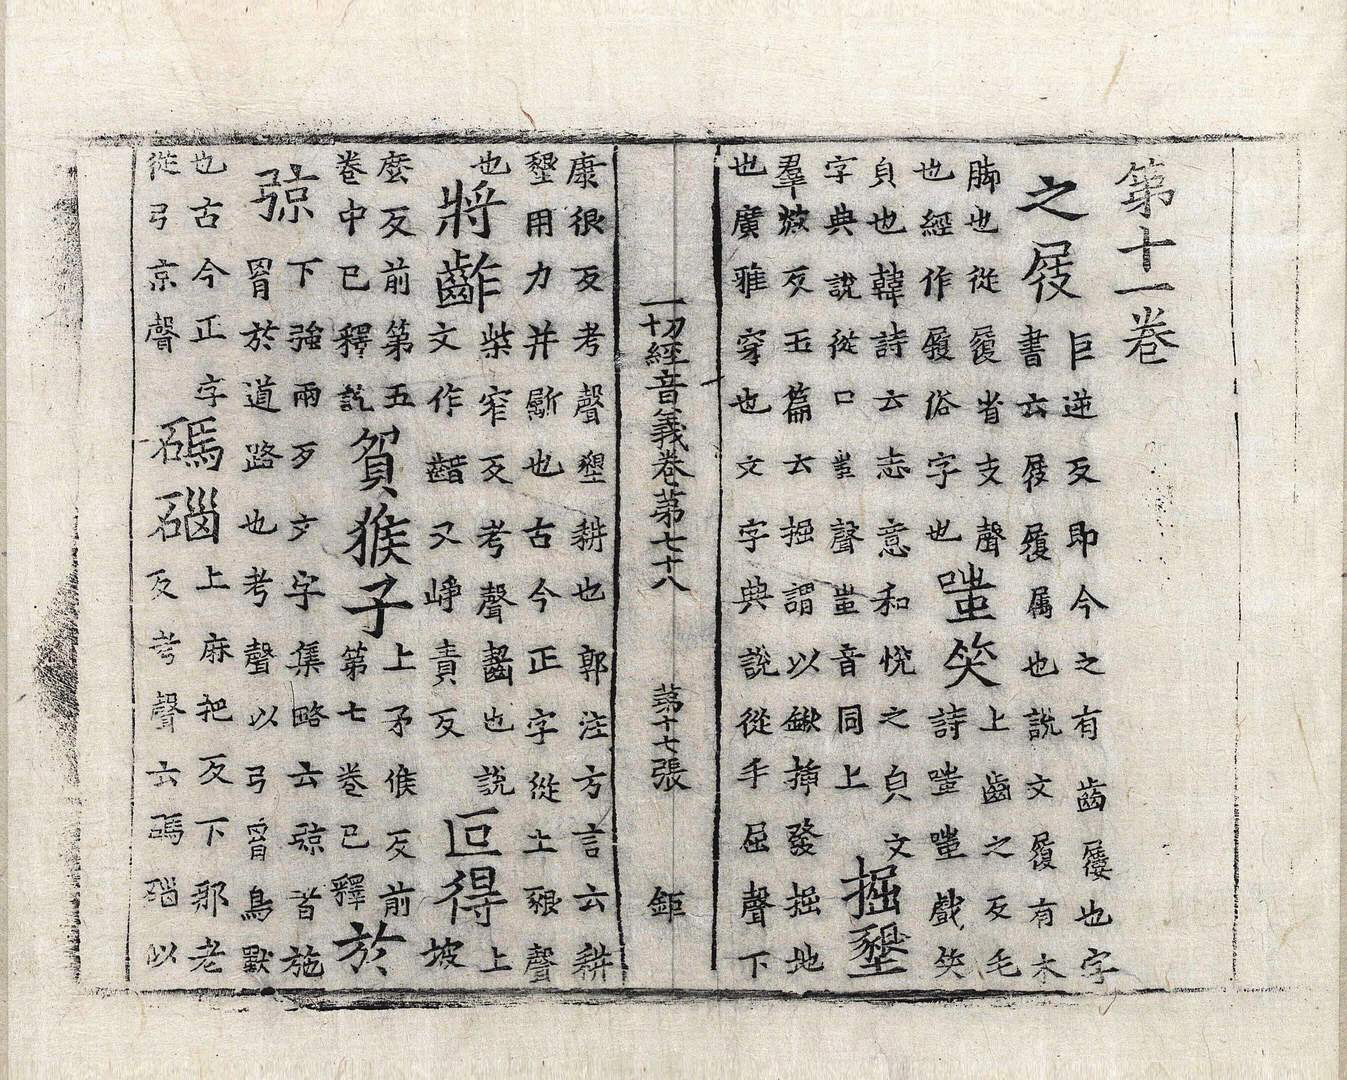 第十一卷
之屐巨逆反即今之有齒屐也字書云屐履属也說文履有木
脚也從履省支聲也經作屐俗字也嗤笑上齒之反毛詩嗤嗤戲笑
皃也韓詩云志意和悅之皃文字典說從口蚩聲蚩音同上掘墾
羣欻反玉篇云掘謂以鍬揷發掘地也廣雅穿也文字典說從手屈聲下
一切經音義卷第七十八 第十七張 鉅
康很反考聲墾耕也郭注方言云耕墾用力并斸也古今正字從土豤聲
也將齚柴窄反考聲齧也說文作齰又崢責反叵得上坡
麼反前第五卷中已釋訖貿猴子上矛侯反前第七卷已釋於
弶下強兩反文字集略云弶罥施罥於道路也考聲以弓罥鳥獸
也古今正字從弓京聲碼碯上麻把反下那老反考聲云碼碯以